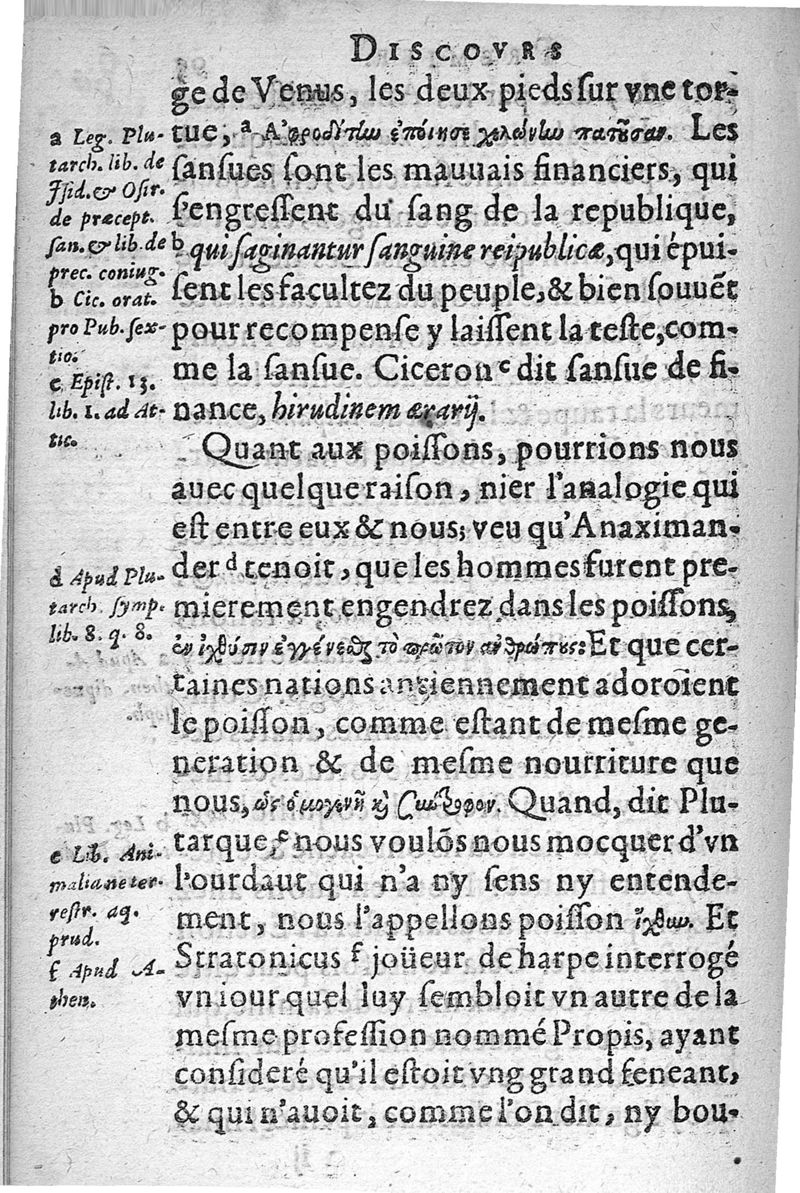 DISCOVRS
ge de Venus, les deux pieds sur vne tor-
tue, ᵃ Ἀφροδίτην ἐποίησε χελώνην πατοῦσαν. Les
sansues sont les mauuais financiers, qui
s'engressent du sang de la republique,
ᵇ qui saginantur sanguine reipublicæ, qui épui-
sent les facultez du peuple, & bien souuēt
pour recompense y laissent la teste, com-
me la sansue. Ciceron ᶜ dit sansue de fi-
nance, hirudinem ærarij.
Quant aux poissons, pourrions nous
auec quelque raison, nier l'analogie qui
est entre eux & nous; veu qu'Anaximan-
der ᵈ tenoit, que les hommes furent pre-
mierement engendrez dans les poissons,
ἐν ἰχθύσιν ἐγγένεσθαι τὸ πρῶτον ἀνθρώπους: Et que cer-
taines nations anciennement adoroient
le poisson, comme estant de mesme ge-
neration & de mesme nourriture que
nous, ὡς ὁμογενῆ καὶ σύντροφον. Quand, dit Plu-
tarque, ᵉ nous voulōs nous mocquer d'vn
lourdaut qui n'a ny sens ny entende-
ment, nous l'appellons poisson ἰχθὺν. Et
Stratonicus ᶠ joüeur de harpe interrogé
vn iour quel luy sembloit vn autre de la
mesme profession nommé Propis, ayant
consideré qu'il estoit vng grand feneant,
& qui n'auoit, comme l'on dit, ny bou-
a Leg. Plu-
tarch. lib. de
Isid. & Osir.
de præcept.
san. & lib. de
prec. coniug.
b Cic. orat.
pro Pub. sex-
tio.
c Epist. 13.
lib. 1. ad At-
tic.
d Apud Plu-
tarch. symp.
lib. 8. q. 8.
e Lib. Ani-
malia ne ter-
restr. aq.
prud.
f Apud A-
then.